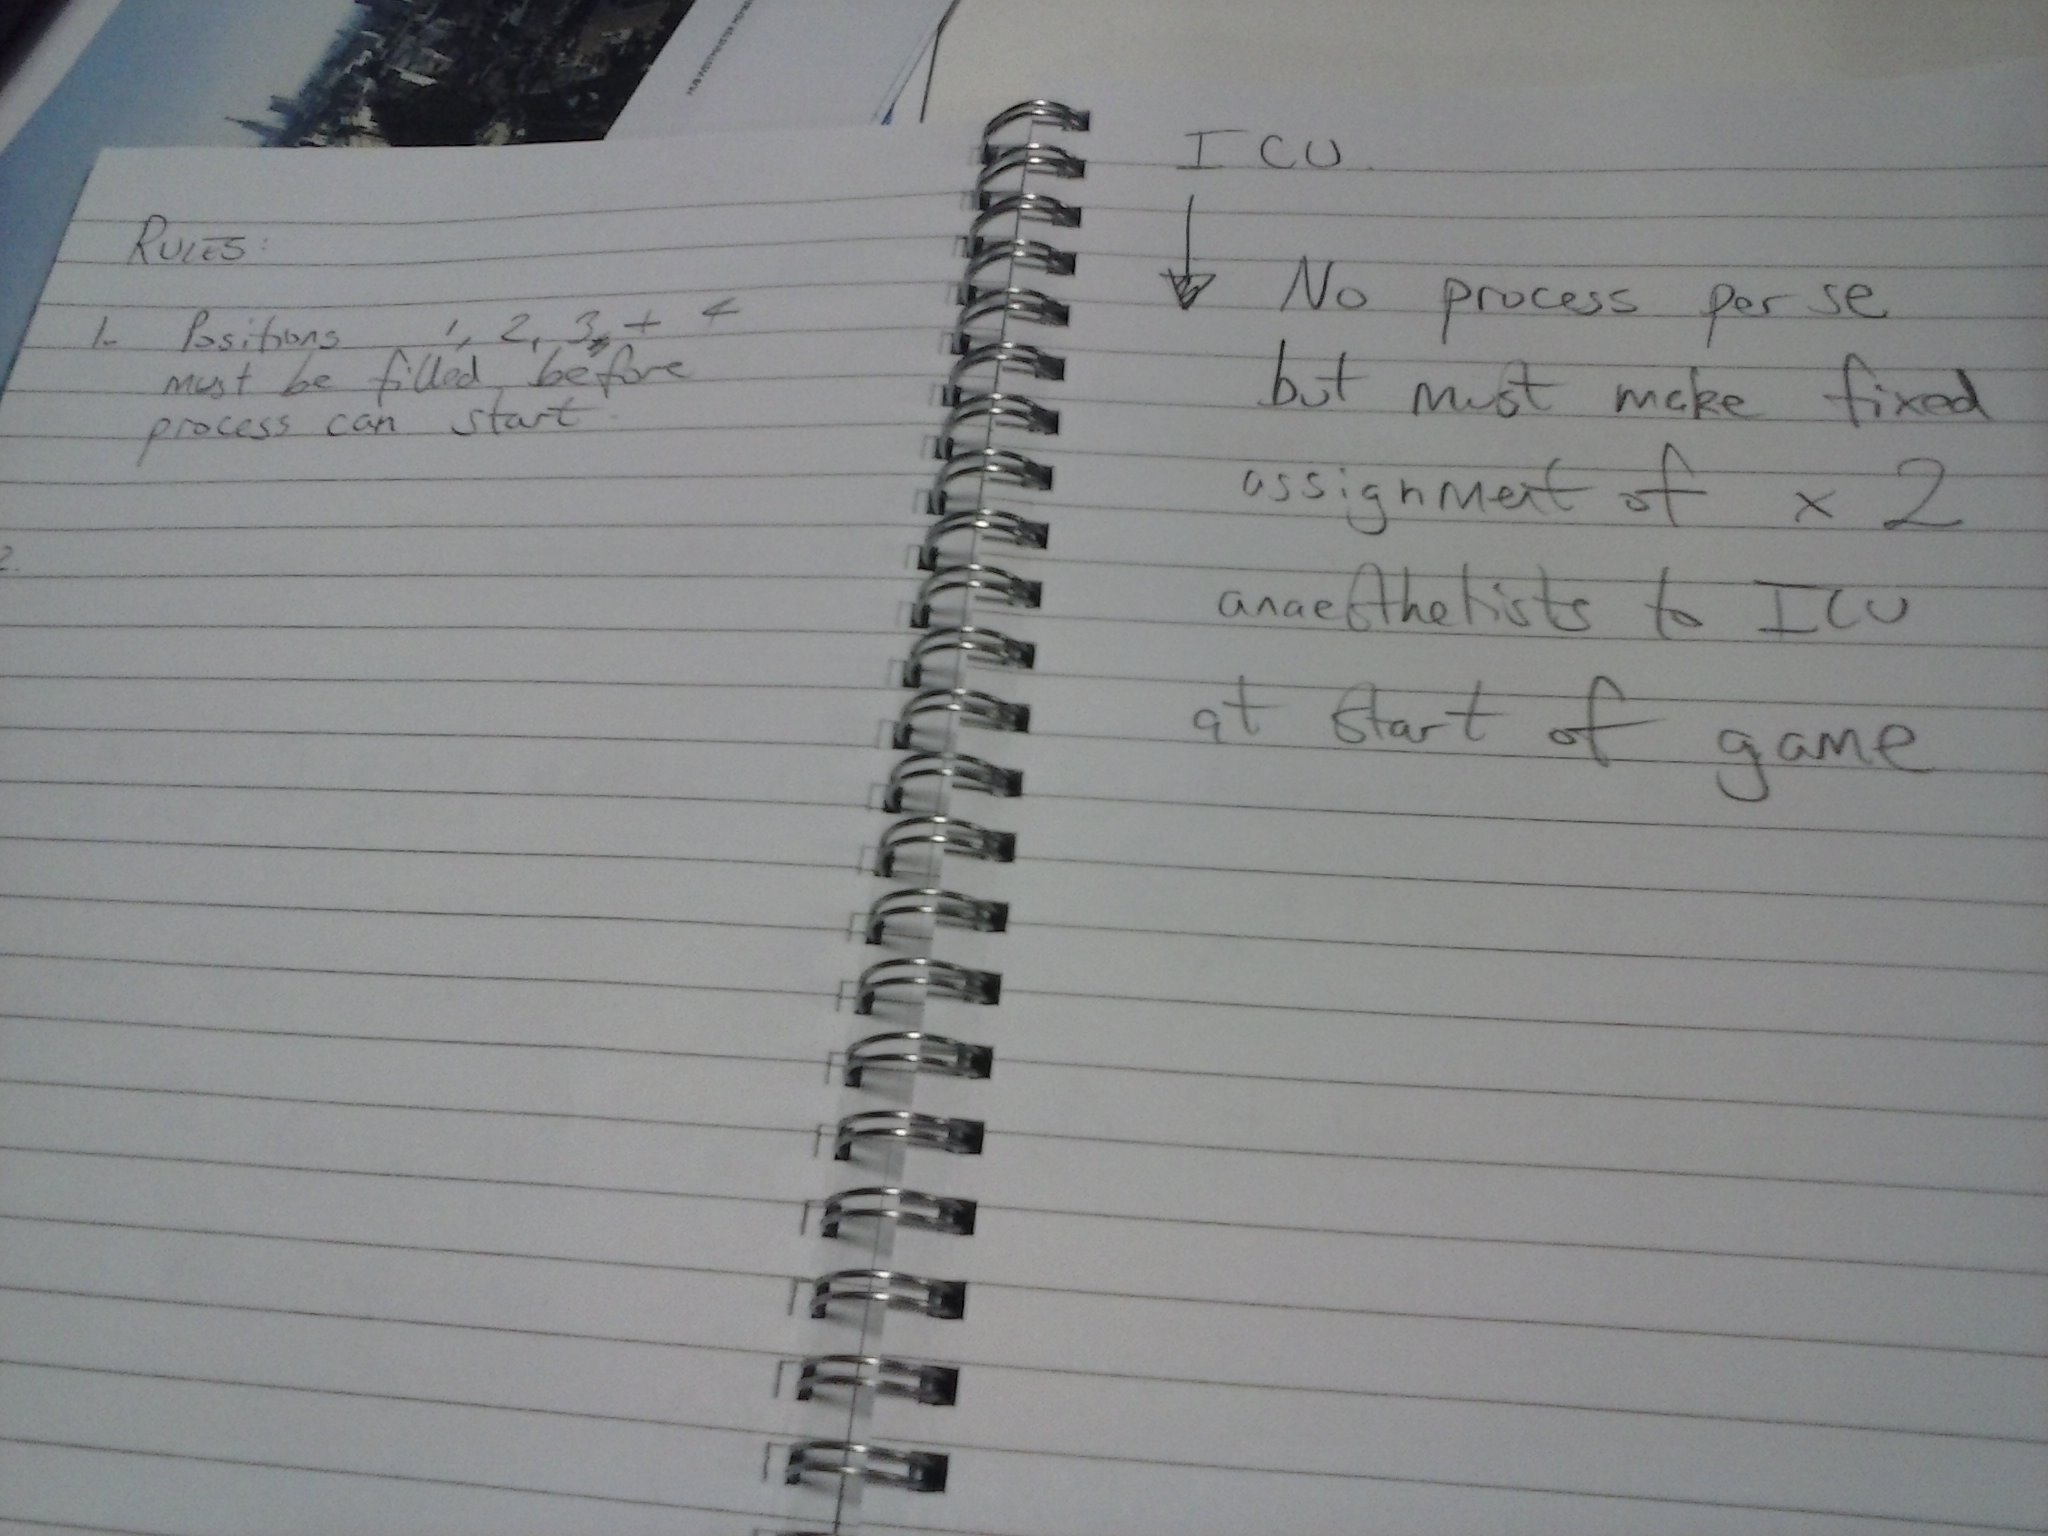 RULES:
1. Positions 1, 2, 3, + 4
must be filled before
process can start.
2.
ICU.
No process per se
but must make fixed
assignment of x 2
anaesthetists to ICU
at start of game